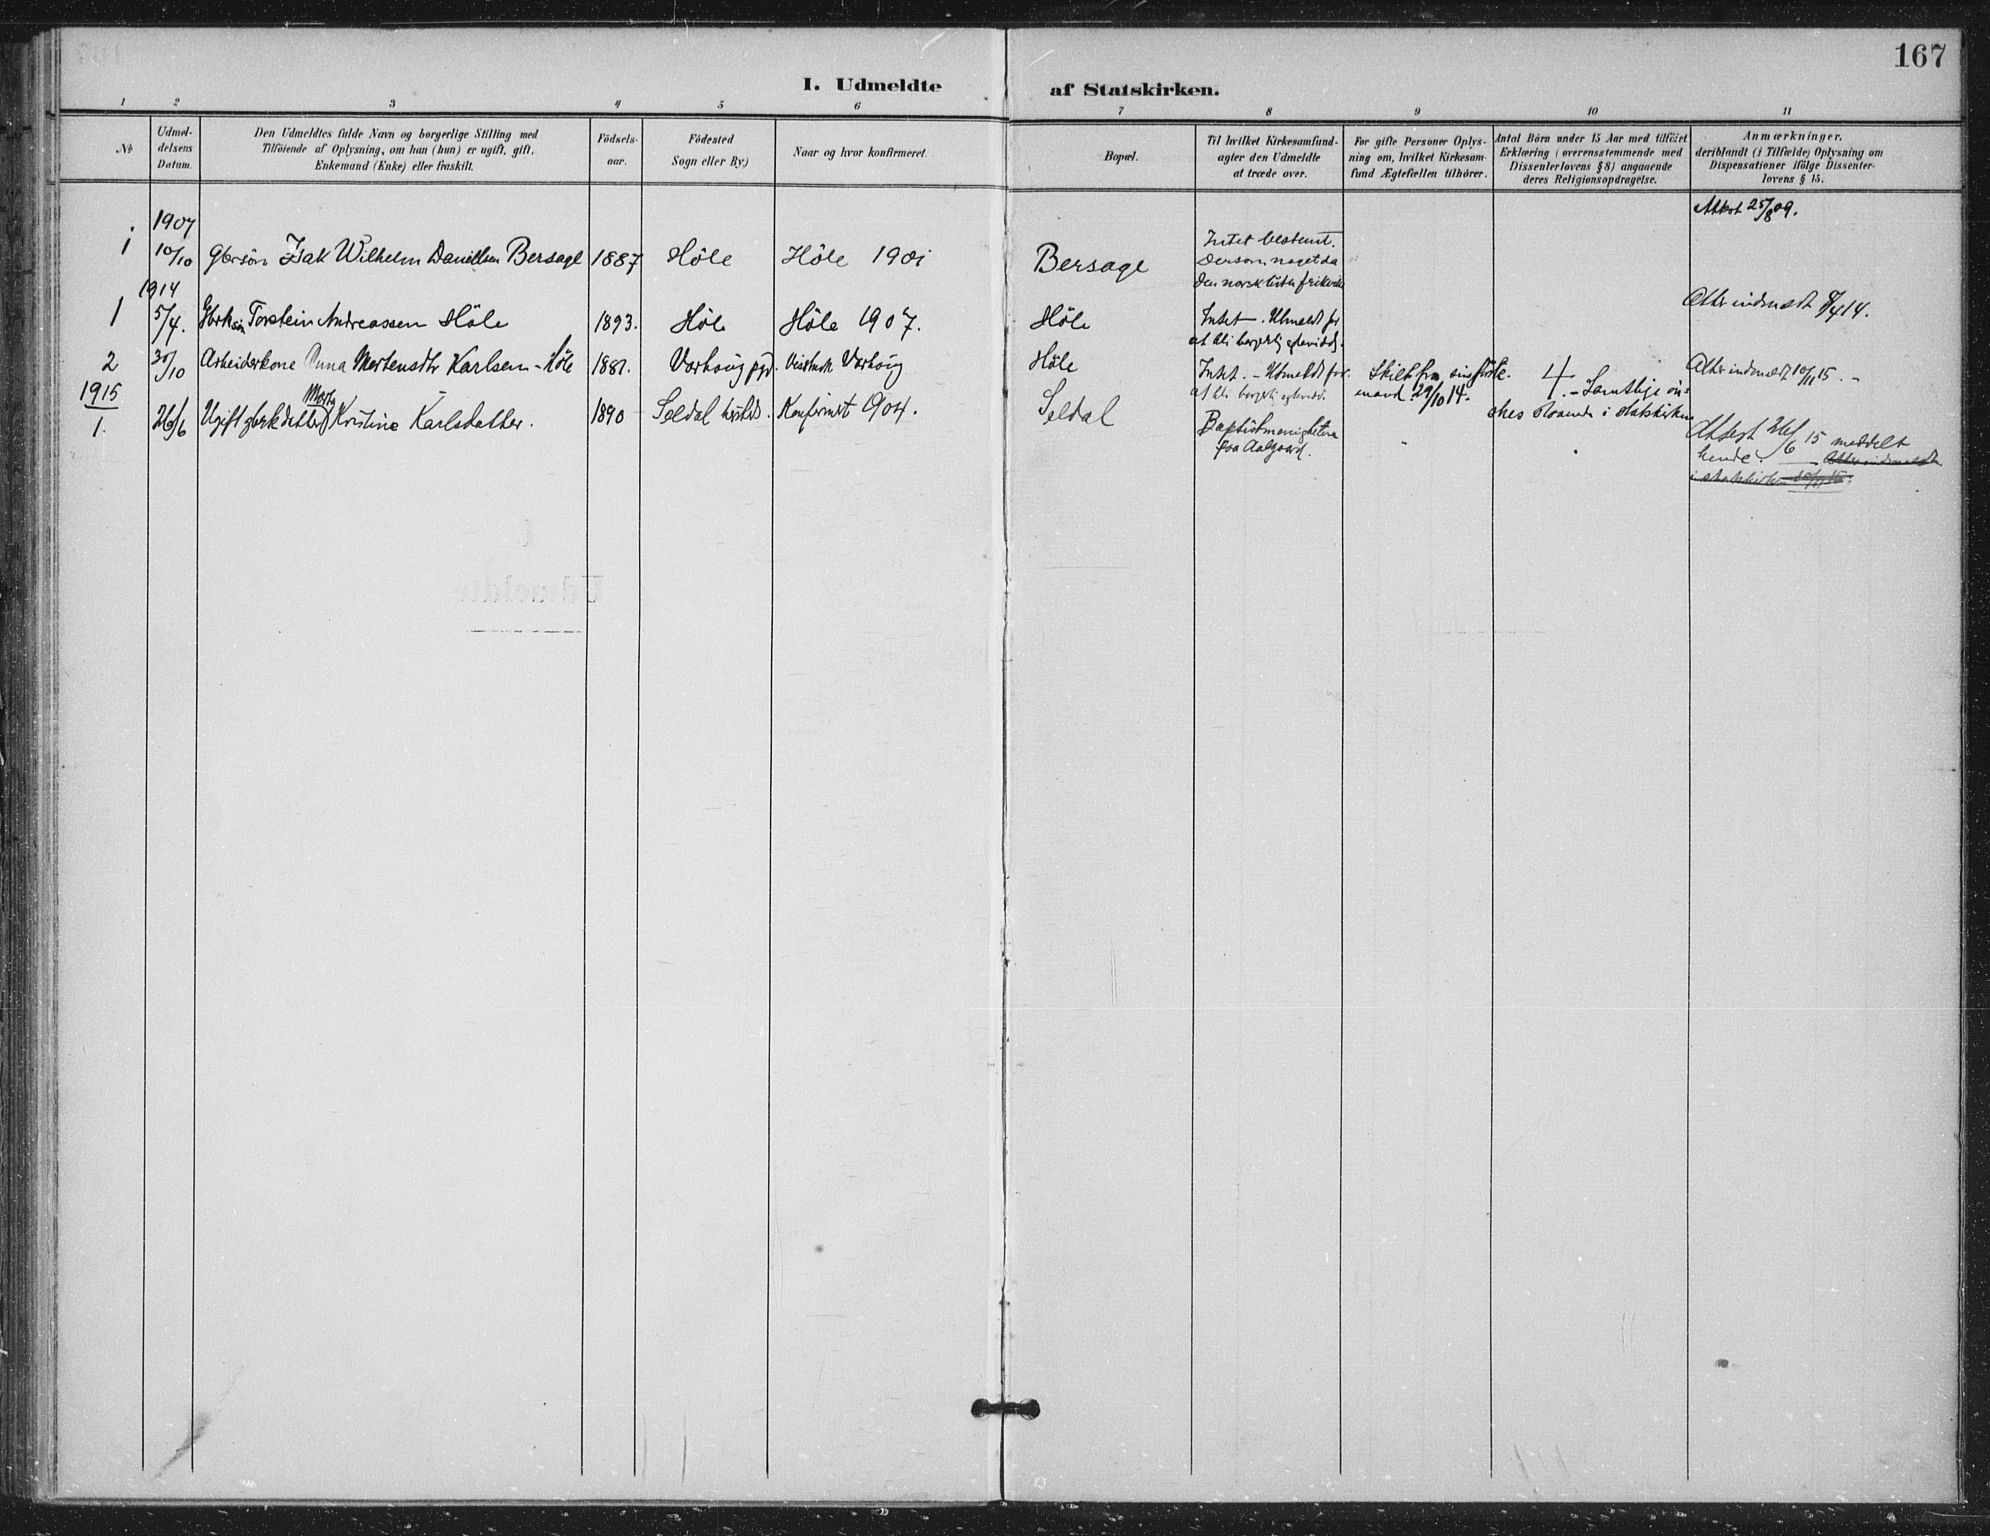 167
I. Udmeldte af Statskirken.
1 2 3 4 5 6 7 8 9 10 11
№
Udmel-
delsens
Datum.
Den Udmeldtes fulde Navn og borgerlige Stilling med
Tilföiende af Oplysning, om han (hun) er ugift, gift,
Enkemand (Enke) eller fraskilt.
Födsels-
aar.
Födested
Sogn eller By)
Naar og hvor konfirmeret.
Bopæl.
Til hvilket Kirkesamfund-
agter den Udmeldte
at træde over.
For gifte Personer Oplys-
ning om, hvilket Kirkesam-
fund Ægtefællen tilhörer.
Antal Börn under 15 Aar med tilföiet
Erklæring (overensstemmende med
Dissenterlovens § 8) angaaende
deres Religionsopdragelse.
Anmærkninger,
deriblandt (i Tilfælde) Oplysning om
Dispensationer ifölge Dissenter-
lovens § 15.
1907
1 10/10 Gbrsön Isak Wilhelm Daniellsen Bersage 1887 Höle Höle 1901 Bersage
Intet bestemt.
Dersom noget da
den norsk luth. frikirke
Attest 25/8 09.
1914
1 5/4. Gbrksön Torstein Andreassen Höle 1893. Höle Höle 1907. Höle
Intet. Utmeldt for
at bli borgerlig egteviddj.
Atter indmeldt 8/4 14.
2 30/10 Arbeiderkone Anna Mortensdtr Karlsen - Höle 1881. Varhoug pgd. Varhoug Höle
Intet. - Utmeldt for
at bli borgerlig egteviddj.
Skilt fra sin förste
mand 29/10 14.
4. - Samtlige ön-
skes staaende i statskirken
Atter indmeldt 10/11 15. -
1915
1. 26/6 Ugift gbrkdatter Marta Kristine Karlsdatter. 1890 Seldal Konfirmert 1904. Seldal
Baptistmenigheten
paa Aalgaard.
"
Attest 26/6 15 meddelt
hende. Atter indmeldt
i statskirken 10/11 15.